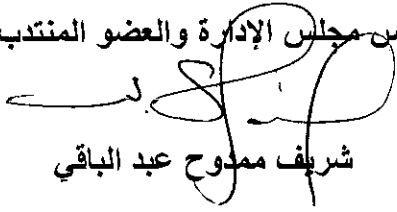 س مجلس الإدارة والعضو المنتدب
شريف ممدوح عبد الباقي